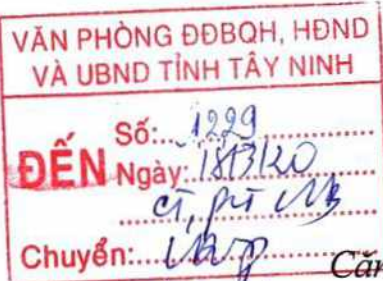 VĂN PHÒNG ĐĐBQH, HĐND
VÀ UBND TỈNH TÂY NINH
ĐẾN
Số:...1229...
Ngày:.18/3/20...
CT, PCT
Chuyển:...
Căn